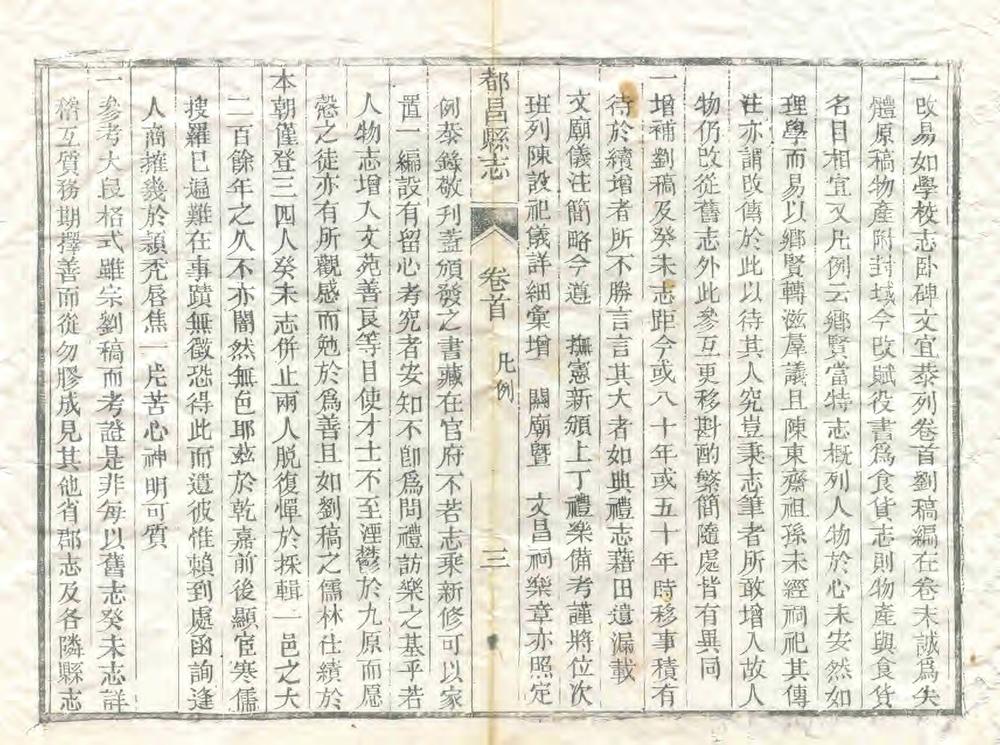 一改易如學校志卧碑文宜恭列卷首劉稿編在卷末誠爲失
體原稿物產附封域今改賦役書爲食貨志則物產與食貨
名目相宜又凡例云鄉賢當特志概列人物於心未安然如
理學而易以鄉賢轉滋羣議且陳東齋祖孫未經祠祀其傳
注亦謂改傳於此以待其人究豈秉志筆者所敢增入故人
物仍改從舊志外此參互更移斟酌繁簡隨處皆有異同
一增補劉稿及癸未志距今或八十年或五十年時移事積有
待於續增者所不勝言言其大者如典禮志藉田遺漏載
文廟儀注簡略今遵 撫憲新頒上丁禮樂備考謹將位次
班列陳設祀儀詳細彙增 關廟曁 文昌祠樂章亦照定
都昌縣志 卷首 凡例 三
例恭錄敬刊蓋頒發之書藏在官府不若志乘新修可以家
置一編設有留心考究者安知不卽爲問禮訪樂之基乎若
人物志增入文苑善良等目使才士不至湮鬱於九原而愿
慤之徒亦有所觀感而勉於爲善且如劉稿之儒林仕績於
本朝僅登三四人癸未志併止兩人脱復憚於採輯一邑之大
二百餘年之久不亦闇然無色耶茲於乾嘉前後顯宦寒儒
搜羅已遍難在事蹟無徵恐得此而遺彼惟賴到處函詢逢
人商榷幾於穎禿唇焦一片苦心神明可質
一參考大段格式雖宗劉稿而考證是非每以舊志癸未志詳
稽互質務期擇善而從勿膠成見其他省郡志及各隣縣志